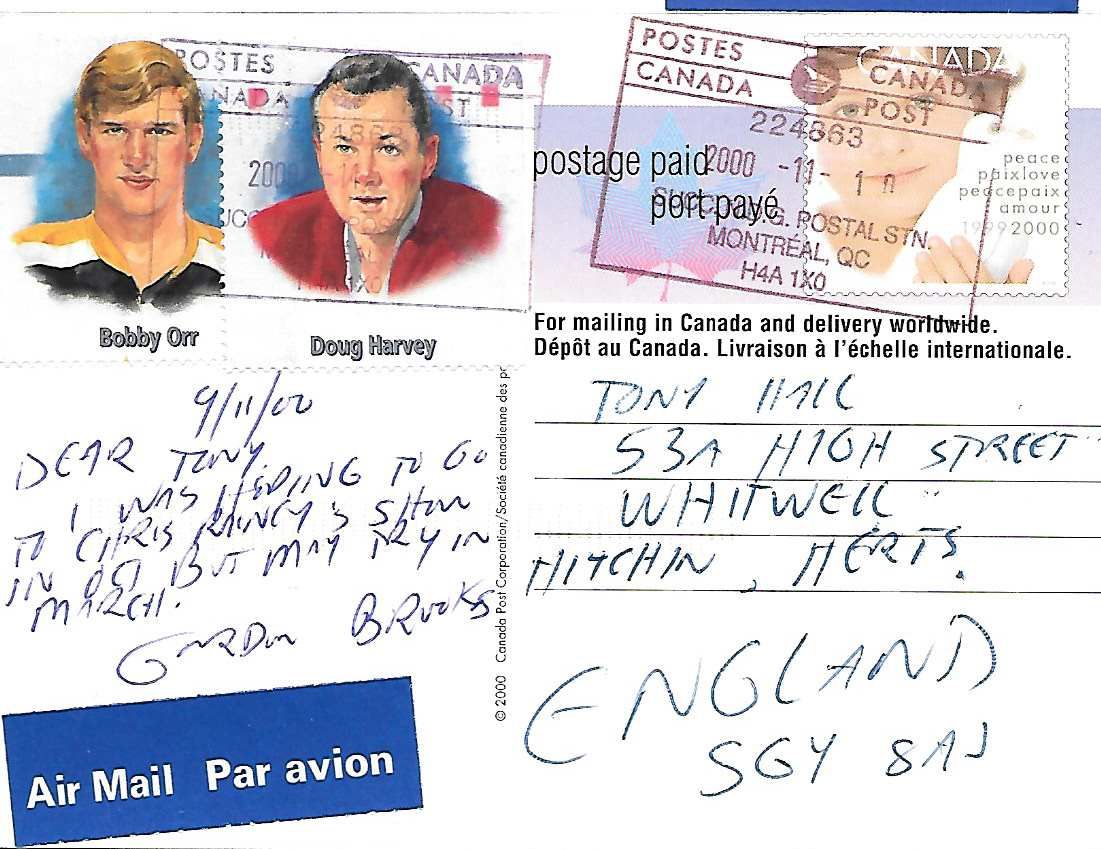 POSTES
CANADA
CANADA
POST
224863
2000 -11- 1
POSTAL STN.
MONTRÉAL, QC
H4A 1X0
POSTES
CANADA
CANADA
H4A 1X0
Bobby Orr
Doug Harvey
postage paid
port payé
CANADA
peace
paixlove
peacepaix
amour
19992000
For mailing in Canada and delivery worldwide.
Dépôt au Canada. Livraison à l'échelle internationale.
9/11/00
DEAR TONY
I WAS HOPING TO GO
TO CHRIS SHOW
IN OCT BUT MAY TRY IN
MARCH.
GORDON BROOKS
© 2000 Canada Post Corporation/Société canadienne des
TONY HALL
53A HIGH STREET
WHITWELL
HITCHIN, HERTS.
ENGLAND
SG4 8AJ
Air Mail Par avion